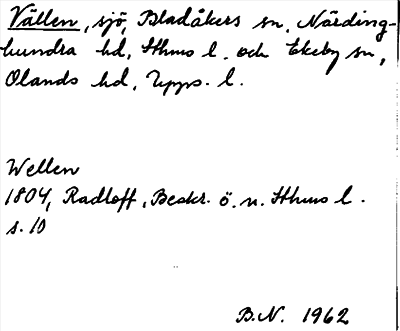 Vällen, sjö, Bladåkers sn, Närding-
hundra hd, Sthms l. och Ekeby sn,
Olands hd, Upps. l.
Wellen
1804, Radloff, Beskr. ö. n. Sthms l.
s. 10
B.N. 1962